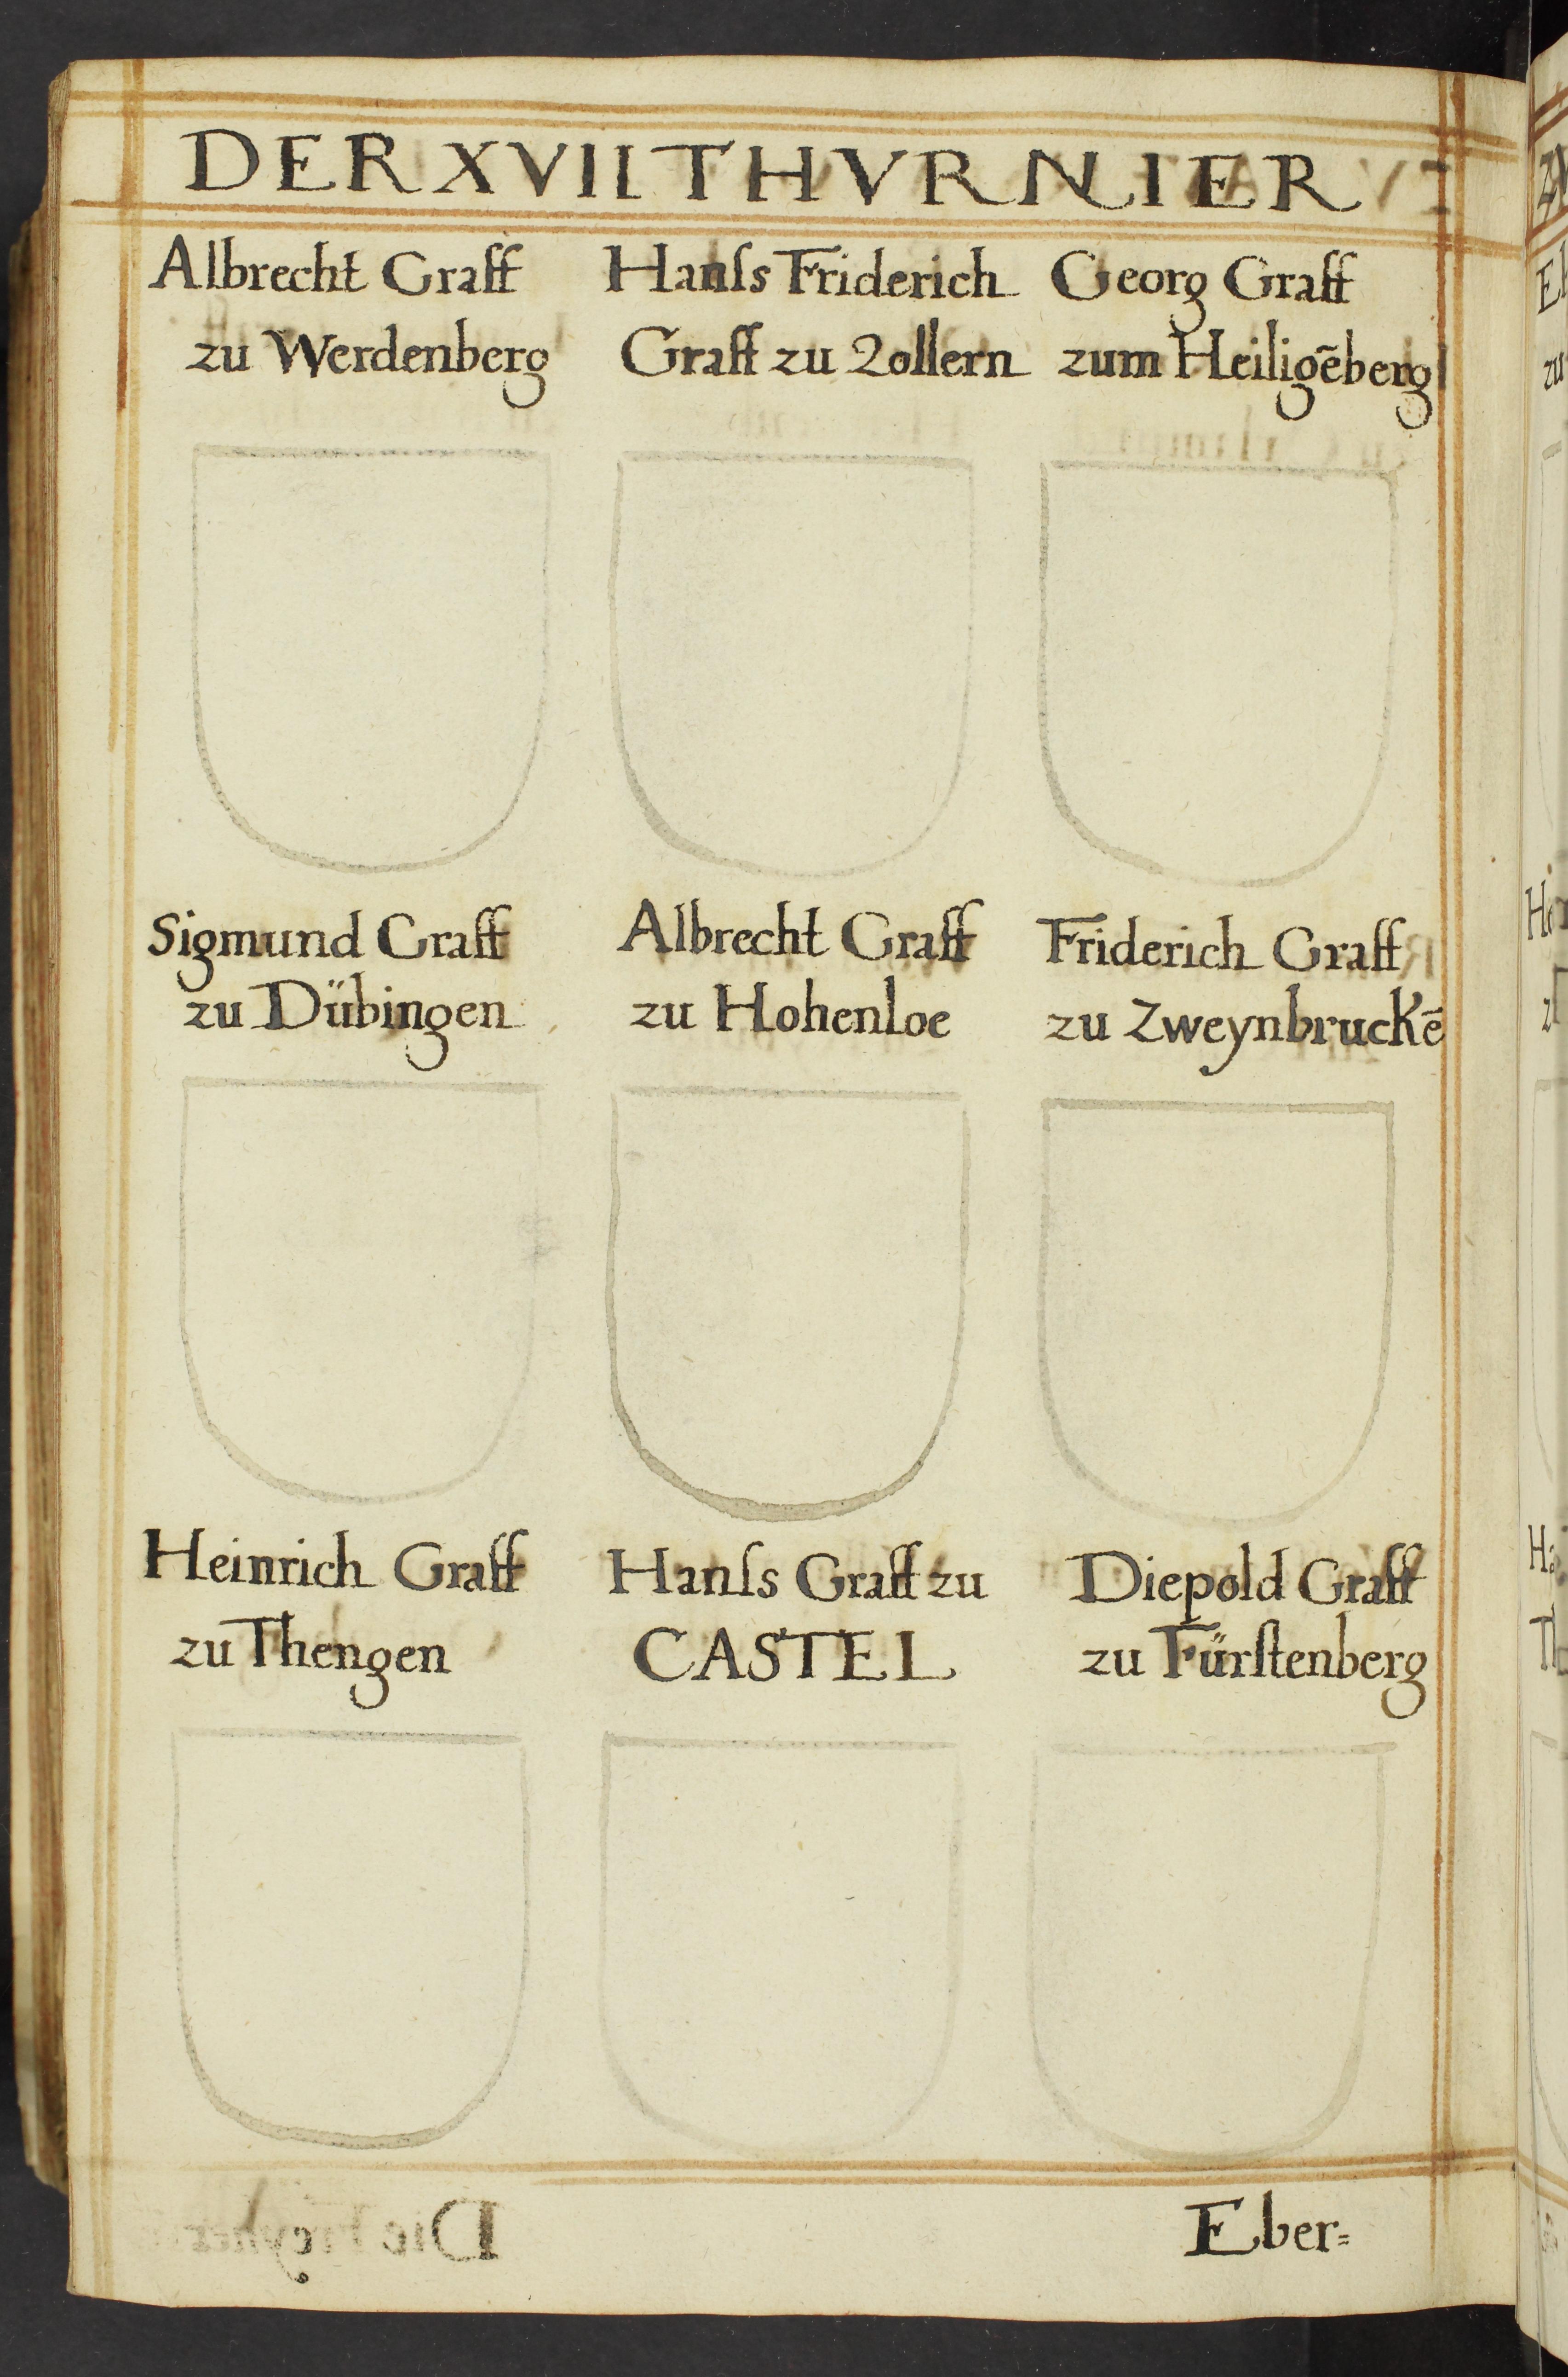 DER XVII THVRNIER
Albrecht Graff
zu Werdenberg
Hanſs Friderich
Graff zu Zollern
Georg Graff
zum Heiligēberg
Sigmund Graff
zu Dübingen
Albrecht Graff
zu Hohenloe
Friderich Graff
zu Zweynbruckē
Heinrich Graff
zu Thengen
Hanſs Graff zu
CASTEL
Diepold Graff
zu Fürſtenberg
Eber=